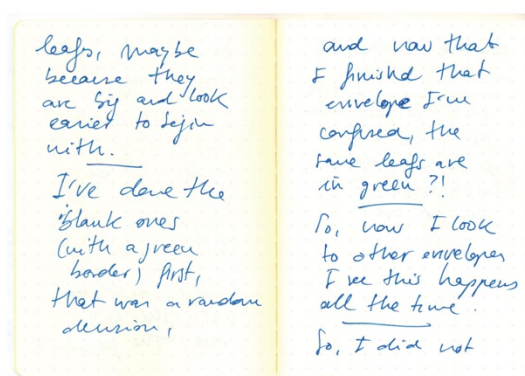 leafs, maybe
because they
are big and look
easier to begin
with.
I've done the
blank ones
(with a green
border) first,
that was a random
decision,
and now that
I finished that
envelope I'm
confused, the
same leafs are
in green?!
So, now I look
to other envelopes
I see this happens
all the time.
So, I did not